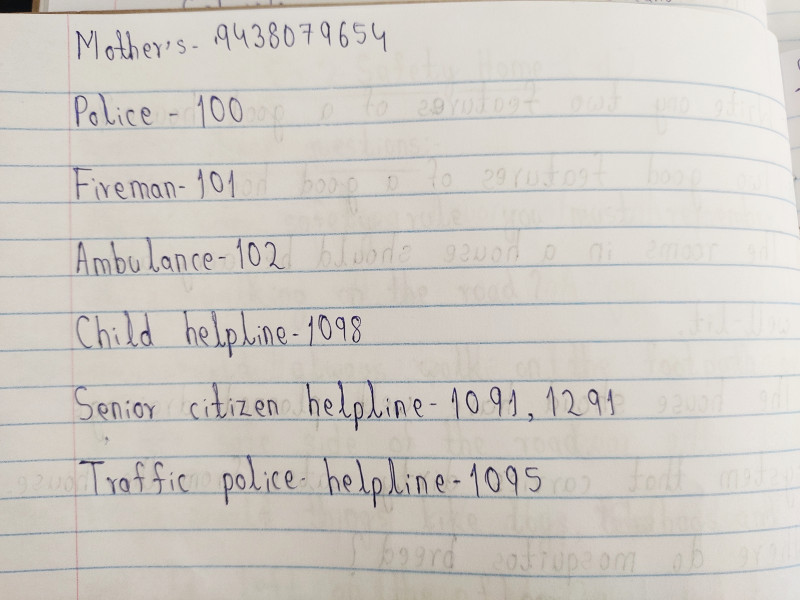 Mother's- 9438079654
Police - 100
Fireman- 101
Ambulance- 102
Child helpline- 1098
Senior citizen helpline- 1091, 1291
Traffic police- helpline- 1095